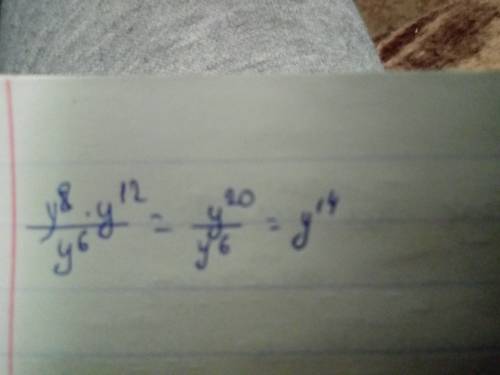 y⁸ · y¹² / y⁶ = y²⁰ / y⁶ = y¹⁴